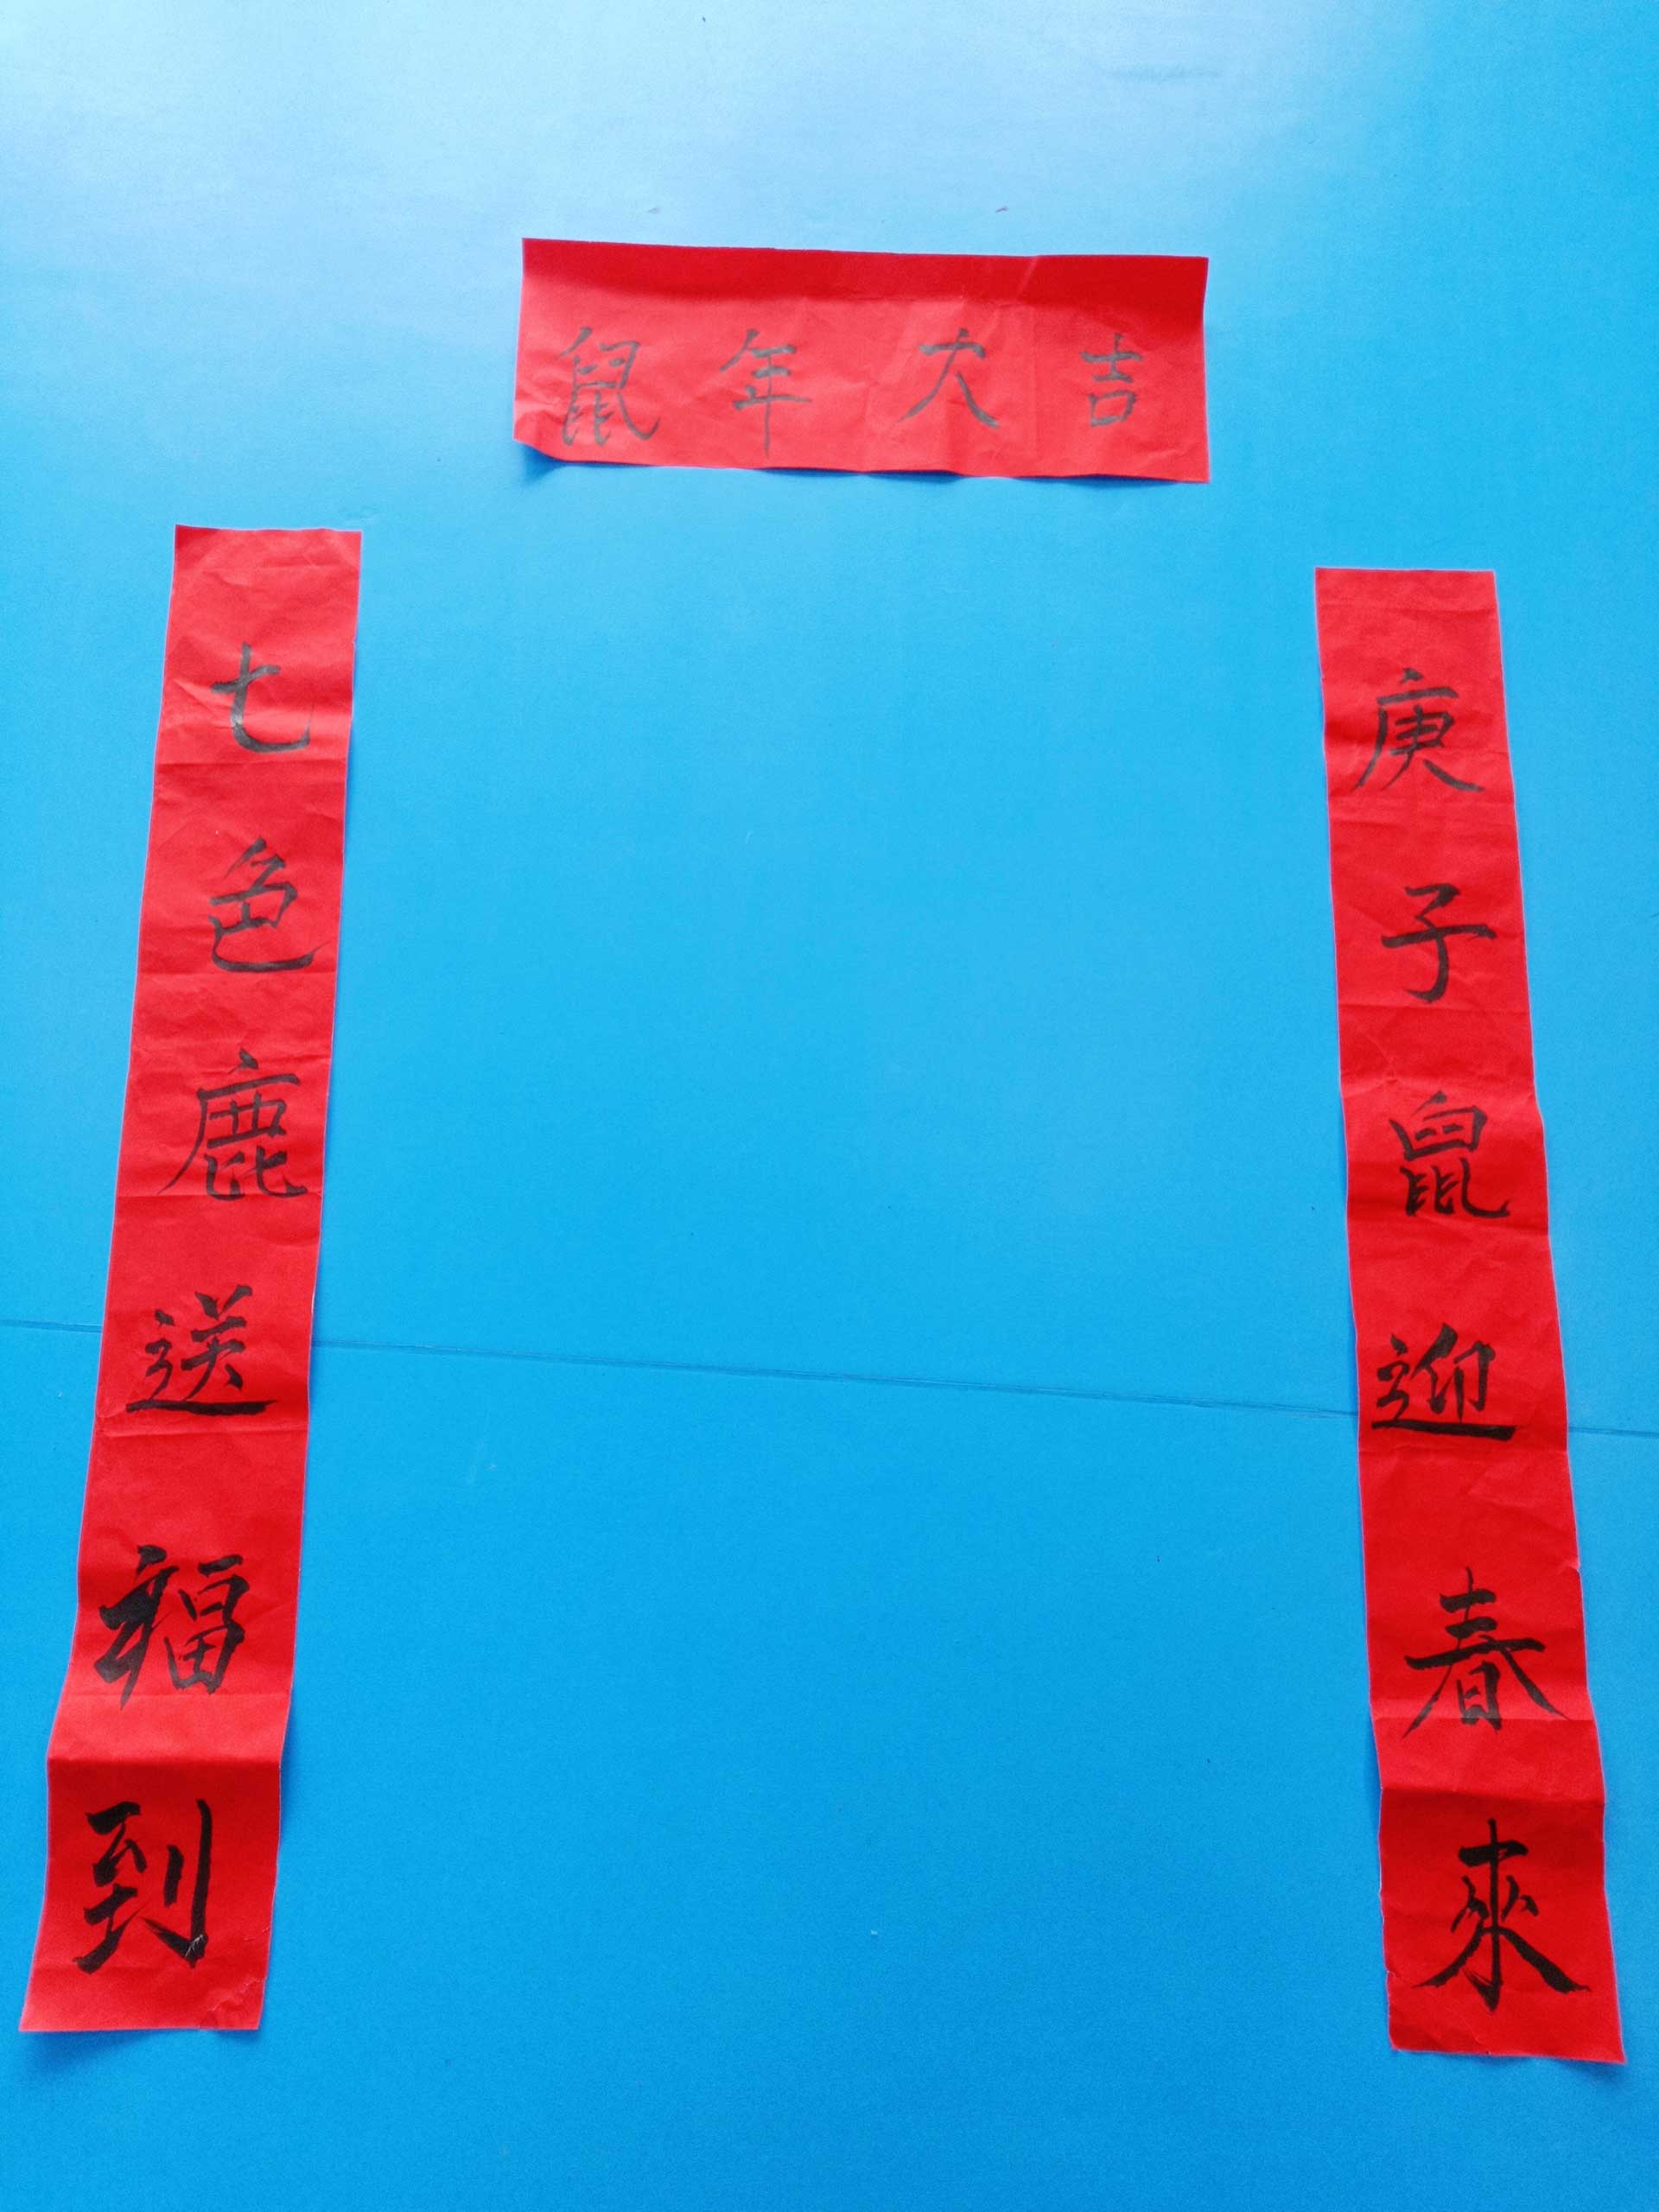 鼠年大吉
庚子鼠迎春來
七色鹿送福到